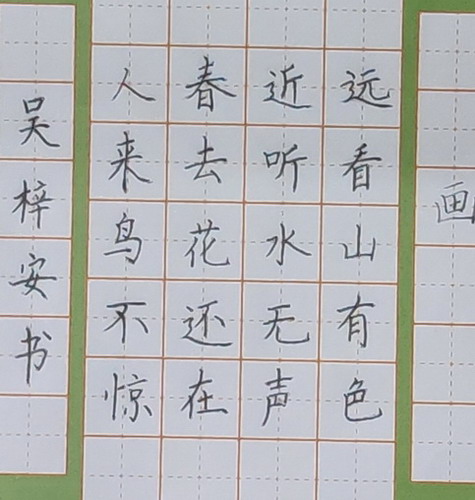 画
远看山有色
近听水无声
春去花还在
人来鸟不惊
吴梓安书